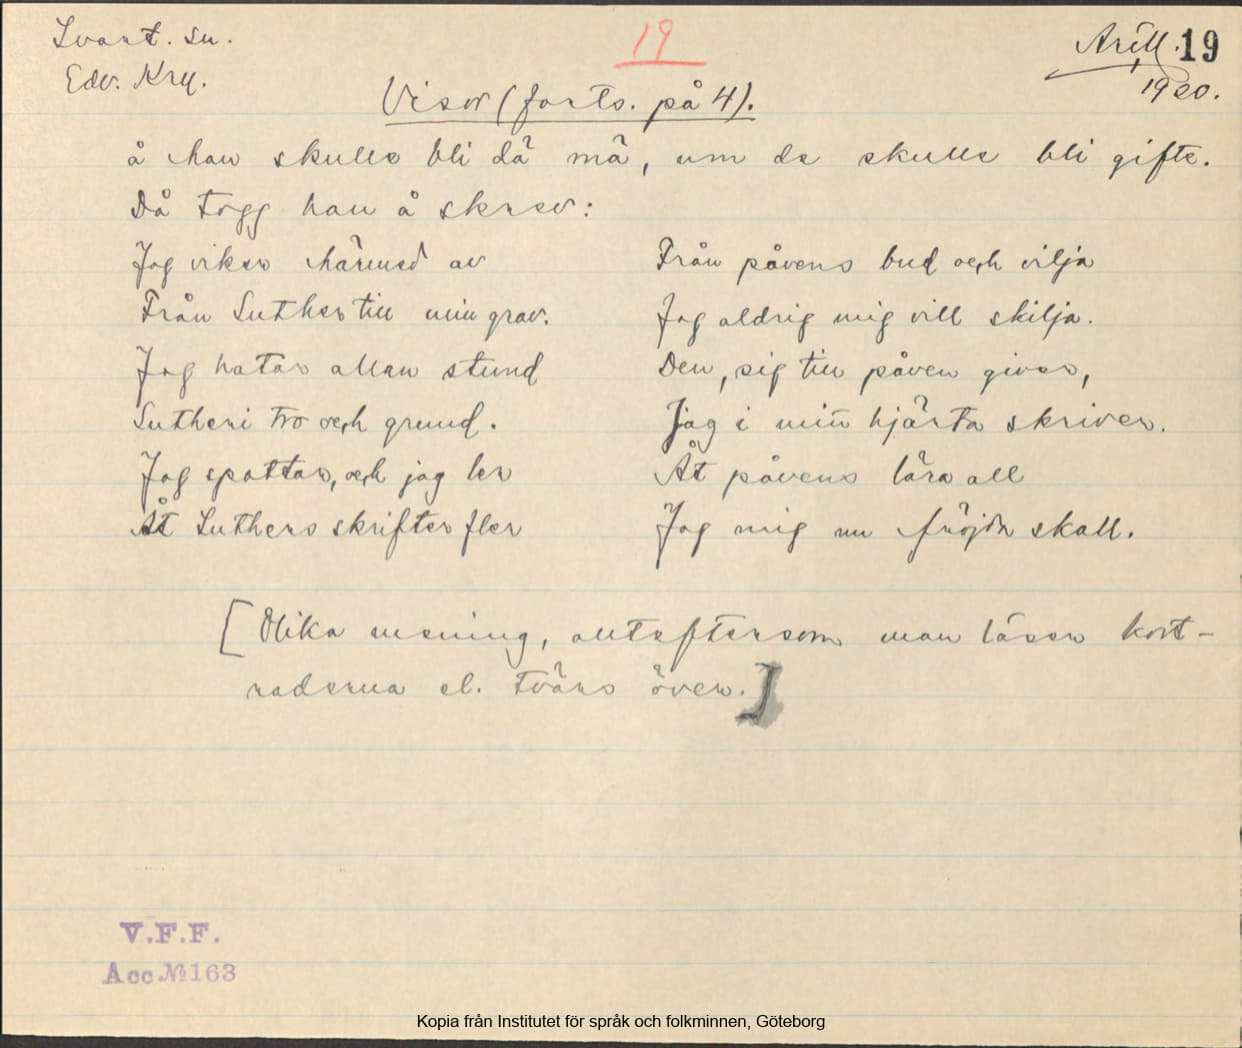 Svart. sn.
19
Arill. 19
Edv. Kry.
1920.
Visor (forts. på 4).
å han skulle bli dä mä, um de skulle bli gifte.
Då togg han å skrev:
Jag viker härmed av
Från påvens bud och vilja
Från Luther till min grav.
Jag aldrig mig vill skilja.
Jag hatar allan stund
Den, sig till påven giver,
Lutheri tro och grund.
Jag i min hjärta skriver.
Jag spottar, och jag ler
Åt påvens lära all
Åt Luthers skrifter fler
Jag mig nu fröjda skall.
[Olika mening, allteftersom man läser kort-
raderna el. tvärs över.]
V.F.F.
Acc № 163
Kopia från Institutet för språk och folkminnen, Göteborg